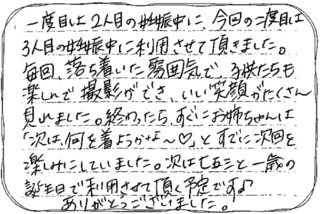 一度目は2人目の妊娠中に、今回の二度目は
3人目の妊娠中に利用させて頂きました。
毎回、落ち着いた雰囲気で、子供たちも
楽しんで撮影ができ、いい笑顔がたくさん
見れました。終わったら、すぐにお姉ちゃんは
「次は、何を着ようかなぁ〜♡」とすでに次回を
楽しみにしていました。次は七五三と一歳の
誕生日で利用させて頂く予定です♪
ありがとうございました。